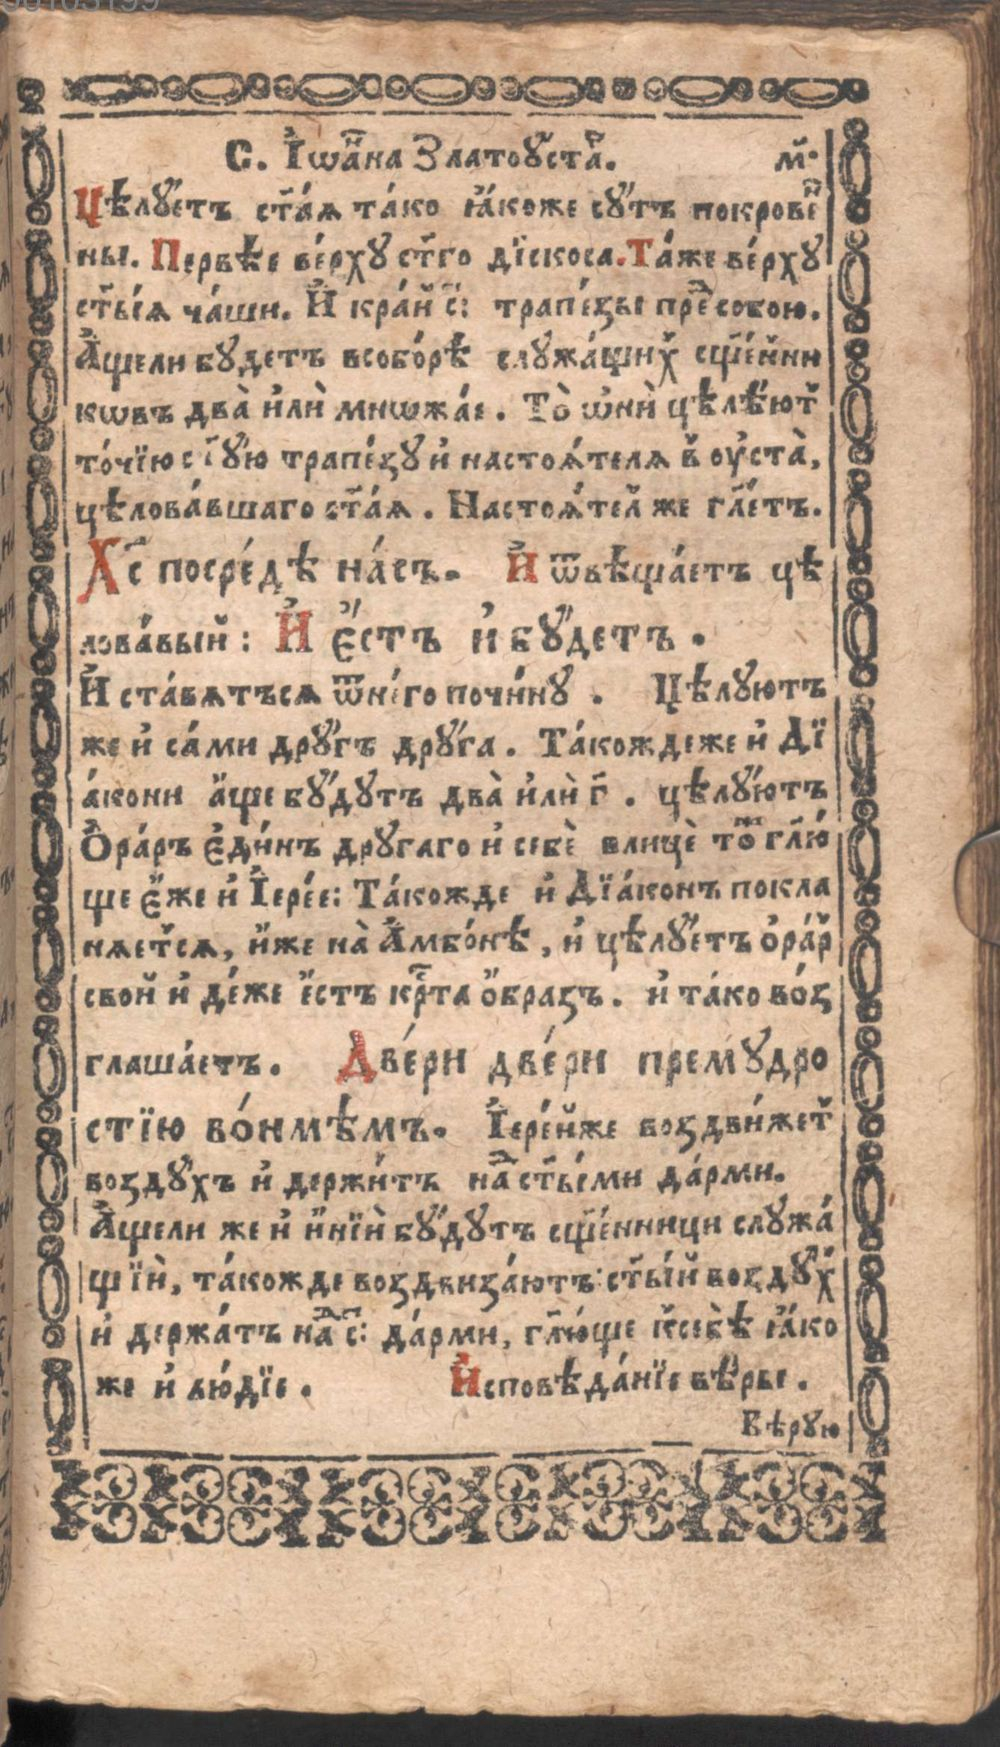 С. І҆ѡа҃на Златоꙋста҃. м҃.
Цѣлꙋ́етъ ст҃а́ѧ та́ко ꙗ҆́коже сꙋ́тъ покрове́н
ны. Первѣе ве́рхꙋ ст҃го ді́скоса. Та́же ве́рхꙋ
ст҃ы́ѧ ча́ши. И҆ кра́й с҃: трапе́зы пред̾ собою.
А҆́щели бꙋ́детъ всобо́рѣ слꙋжа́щих̾ сщ҃е́нни
кѡвъ два̀ и҆лѝ мнѡжа́е. То̀ ѡ҆нѝ цѣлꙋ́ют̾
то́чїю с҃ꙋ́ю трапе́зꙋ и҆ настоѧ́телѧ в̾ ᲂу҆ста̀,
цѣлова́вшаго ст҃а́ѧ. Настоѧ́тел̾ же гл҃етъ.
Хс҃ посре́дѣ на́съ. И҆ ѿвѣща́етъ цѣ
лова́вый: И҆ є҆́стъ и҆ бꙋ́детъ.
И҆ ста́вѧтъсѧ ѿне́го почи́нꙋ. Цѣлꙋютъ
же и҆ са́ми дрꙋ́гъ дрꙋ́га. Та́кождеже и҆ Дї
а́кони а҆́ще бꙋ́дꙋтъ два̀ и҆лѝ г҃. цѣлꙋ́ютъ
Ѻ҆ра́ръ є҆ди́нъ дрꙋгаго и҆ себѐ влицѐ тож̾ гл҃ю́
ще є҆́же и҆ І҆ере́е: Та́кожде и҆ Дїа́конъ покла
нѧет̾сѧ, и҆́же на̀ А҆мбо́нѣ, и҆ цѣлꙋ́етъ ѻ҆ра́р̾
свой и҆ де́же є҆́стъ кр҃та ѻ҆́бразъ. и҆ та́ко во́з
глаша́етъ. Две́ри две́ри премꙋдро
стїю во́нмѣмъ. І҆ере́йже воздви́жет̾
воздꙋ́хъ и҆ держи́тъ над̾ ст҃ы́ми да́рми.
А҆́щели же и҆ и҆ні́й бꙋ́дꙋтъ сщ҃е́нници слꙋжа́
щїй, та́кожде воздвиза́ютъ: ст҃ы́й воздꙋ́х̾
и҆ держа́тъ над̾ с҃: да́рми, гл҃ю́ще к̾себѣ ꙗ҆́ко
же и҆ лю́дїе. И҆сповѣда́нїе вѣ́ры.
Вѣрꙋю